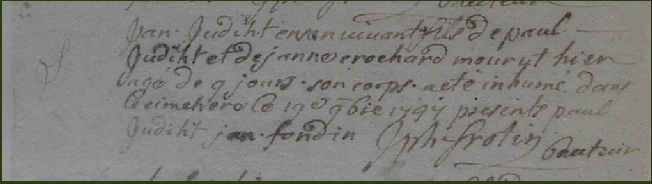 jan Judiht en son vivant fils de paul
Judiht et de janne crochard mouryt hier
agé de 9 jours son corps a eté inhumé dans
le cimetiere le 19e 9bre presents paul
Judiht jan fondin Jph frotin